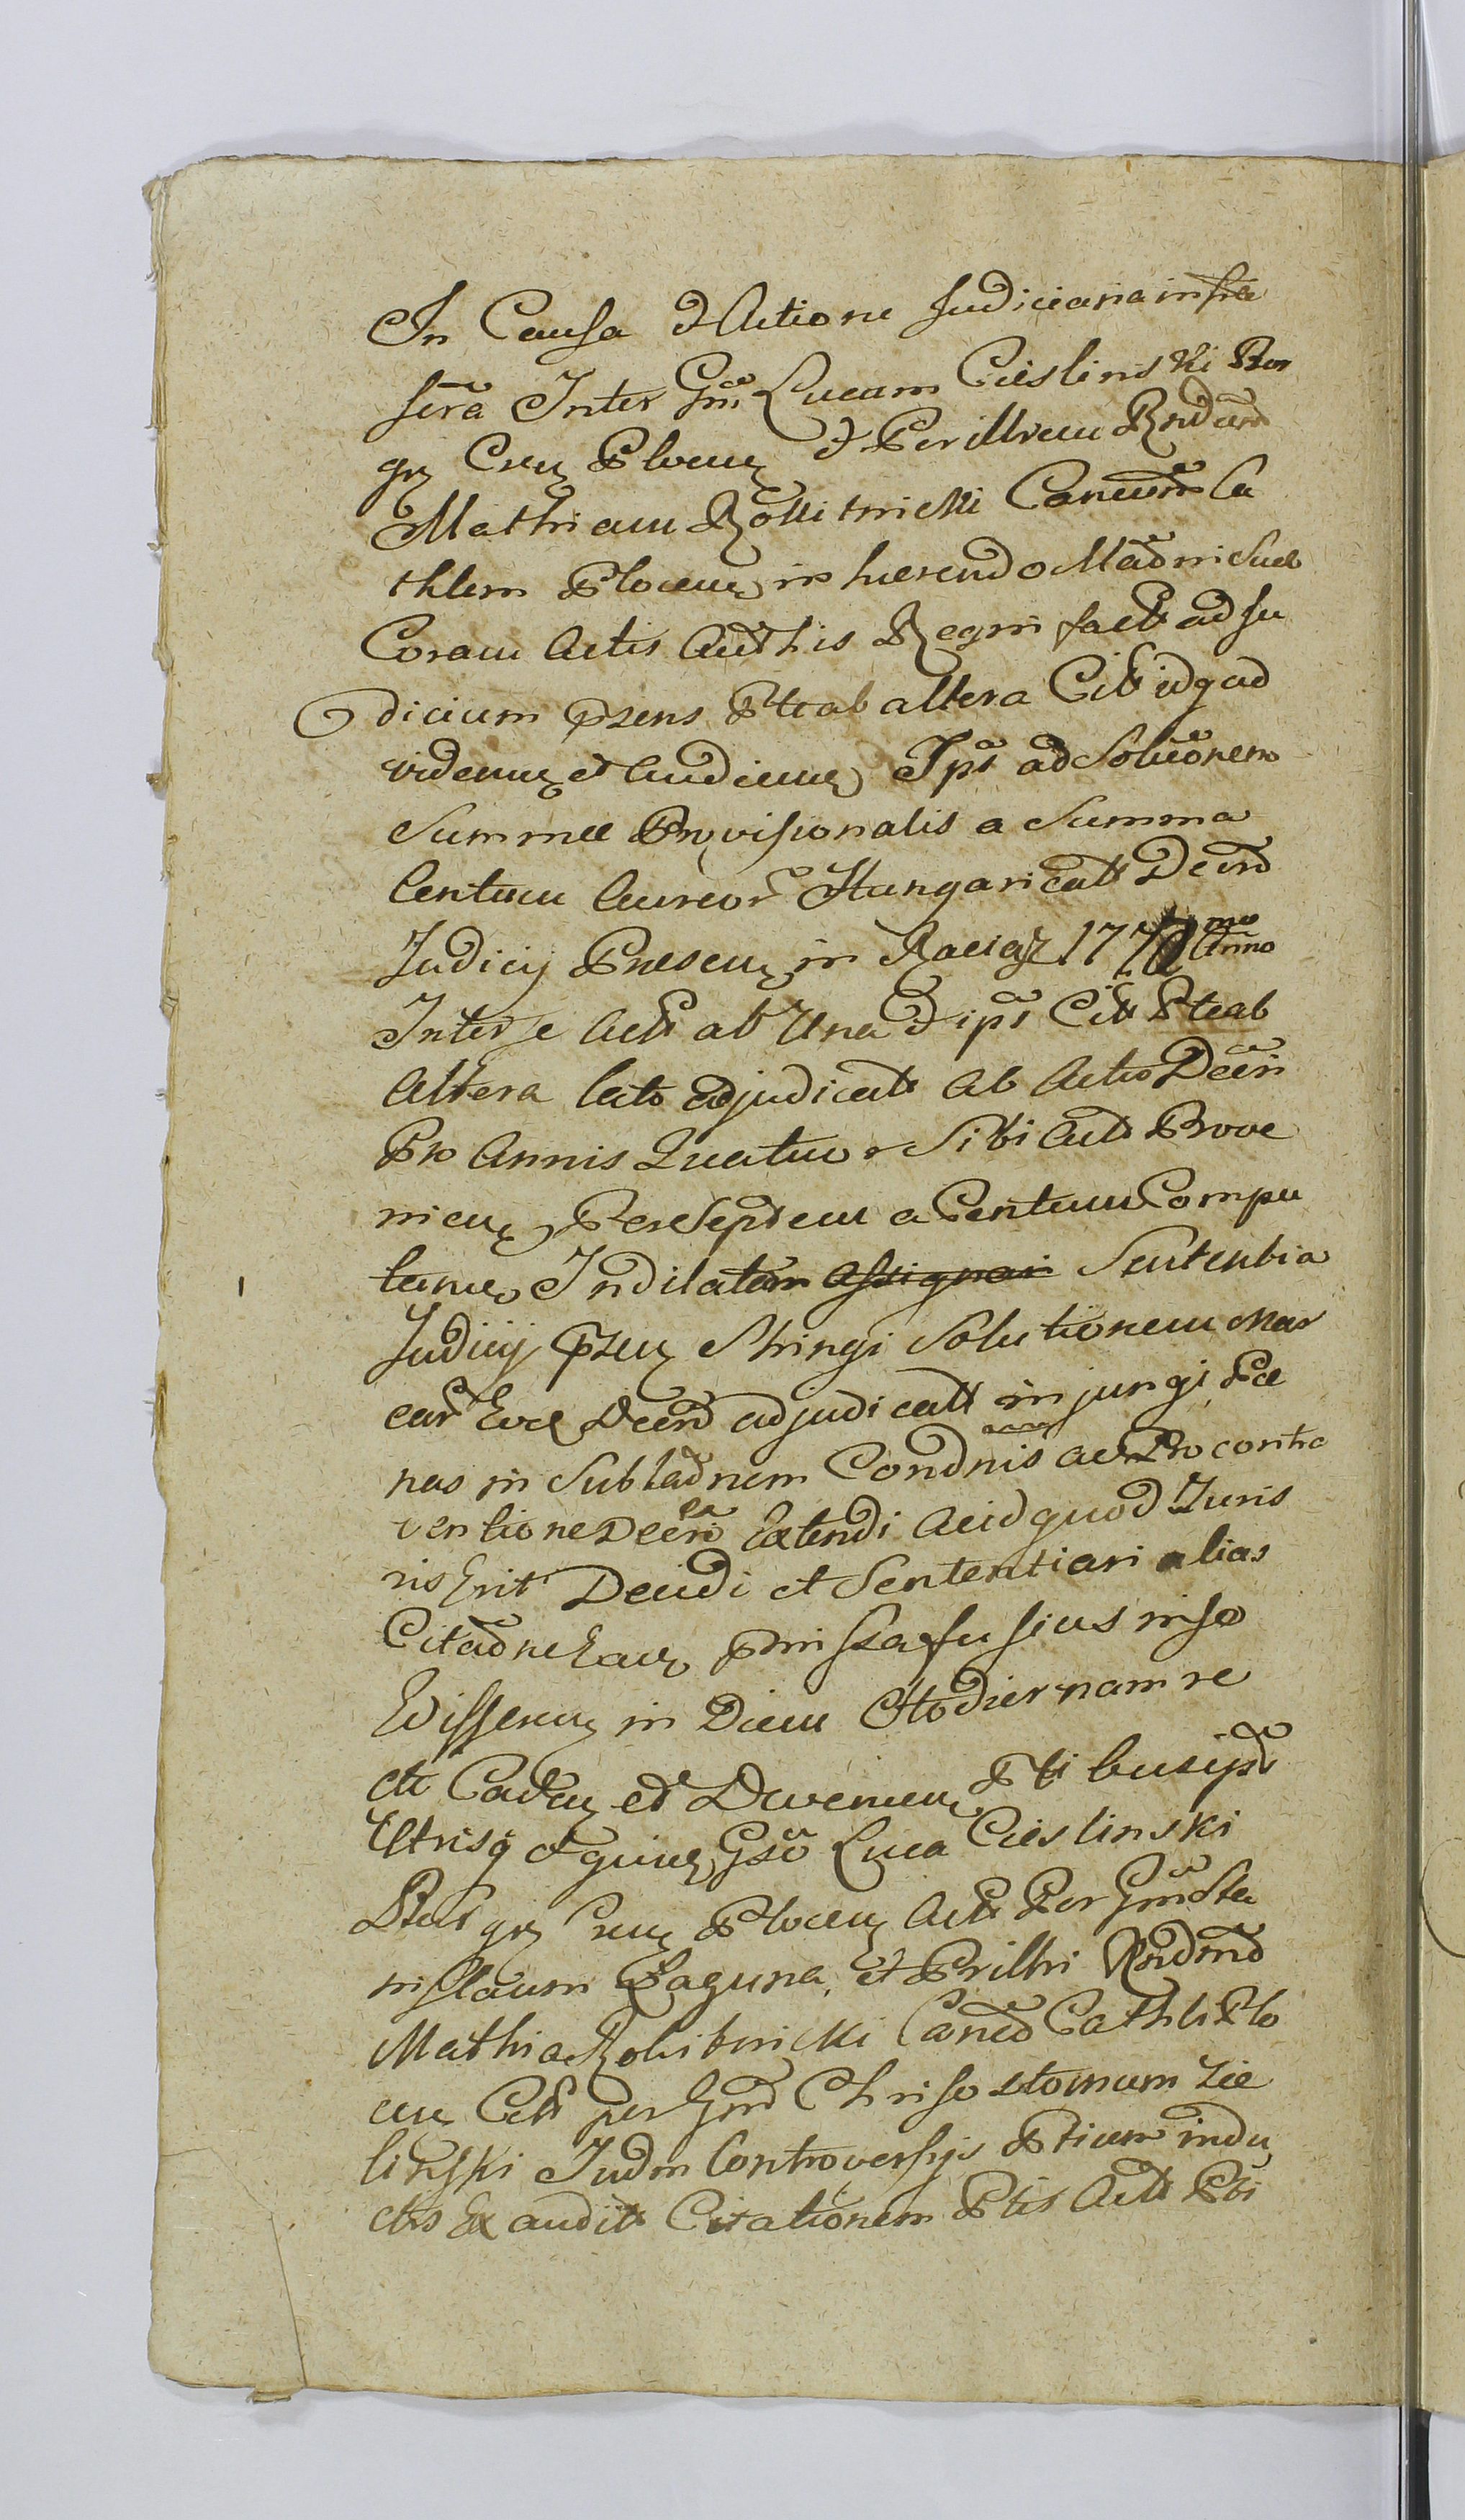 In Causa et Actione Judiciaria infra
scrã Inter Gm̃ Lucam Cieslinski Bur
grz Crm̃ Plocen et Perillrem Rndum
Mathiam Rokitnicki Canonm̃ Ca
thlem Plocen inhærendo Mãdni Suæ
Coram Actis Authis Regni fact ad Ju
dicium p̃zens Pte ab altera Citt idq ad
videnm et Audienm Ips̃ ad Soluõnem
Summæ Provisionalis a Summa
Centum Aureor Hungaricalt Decrto
Judicij Præsen in Raciąz 1770mo Anno
Inter se Act ab Una et ips̃ Citt Pte ab
Altera lato adjudicatt Ab Acto Decri
Pro Annis Quatuor Sibi Actt Prove
nien Per Septem a Centum Compu
tanᵒ Indilatam Assignari Sententia
Judicij p̃zen Stringi Solutionem mar
car Ere Decrto adjudicatt injungi Pæ
nas in Subladnem Condnis ac Pro contra
ventione Decri ea Extendi Ac id quod Juris
ris Erit Decidi et Sententiari alias
Citãone hac p̃missa fusius in se
Edisseren in Diem Hodiernam re
cte Caden et Devenien Ptibus ips̃
Utrisq et quidem Gso Luca Cieslinski
Bur grz Crm Plocen Actt Per Gm̃ Sta
nislaum Łaguna, et Prillri Rndmo
Mathia Rokitnicki Canco Cathli Plo
cen Citt per Gm̃ Chrisostomum Zie
linski Judm Controversijs Ptium indu
ctis Exaudit Citationem Ptis Actt Pti